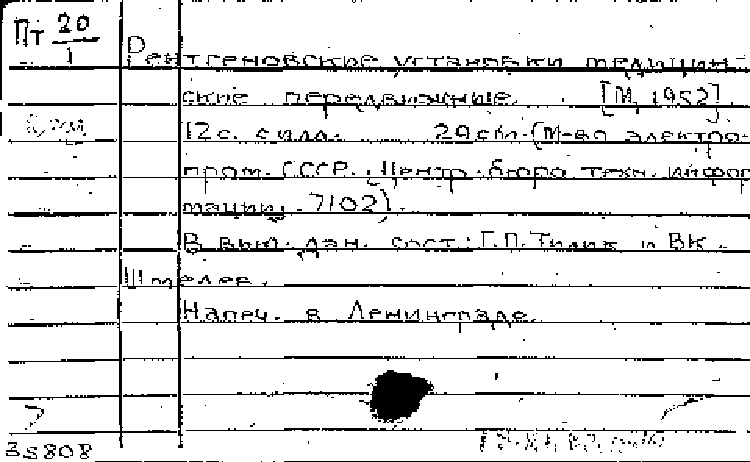 Пт 20/1
Рентгеновские установки медицин-
ские передвижные. [М, 1952]
12 с. с илл. 29 см. (М-во электро-
пром. СССР. Центр. бюро техн. инфор
мации. 7102).
В вып. дан. сост: Г.П. Тилик и В.К.
Штелев.
Напеч. в Ленинграде.
35808